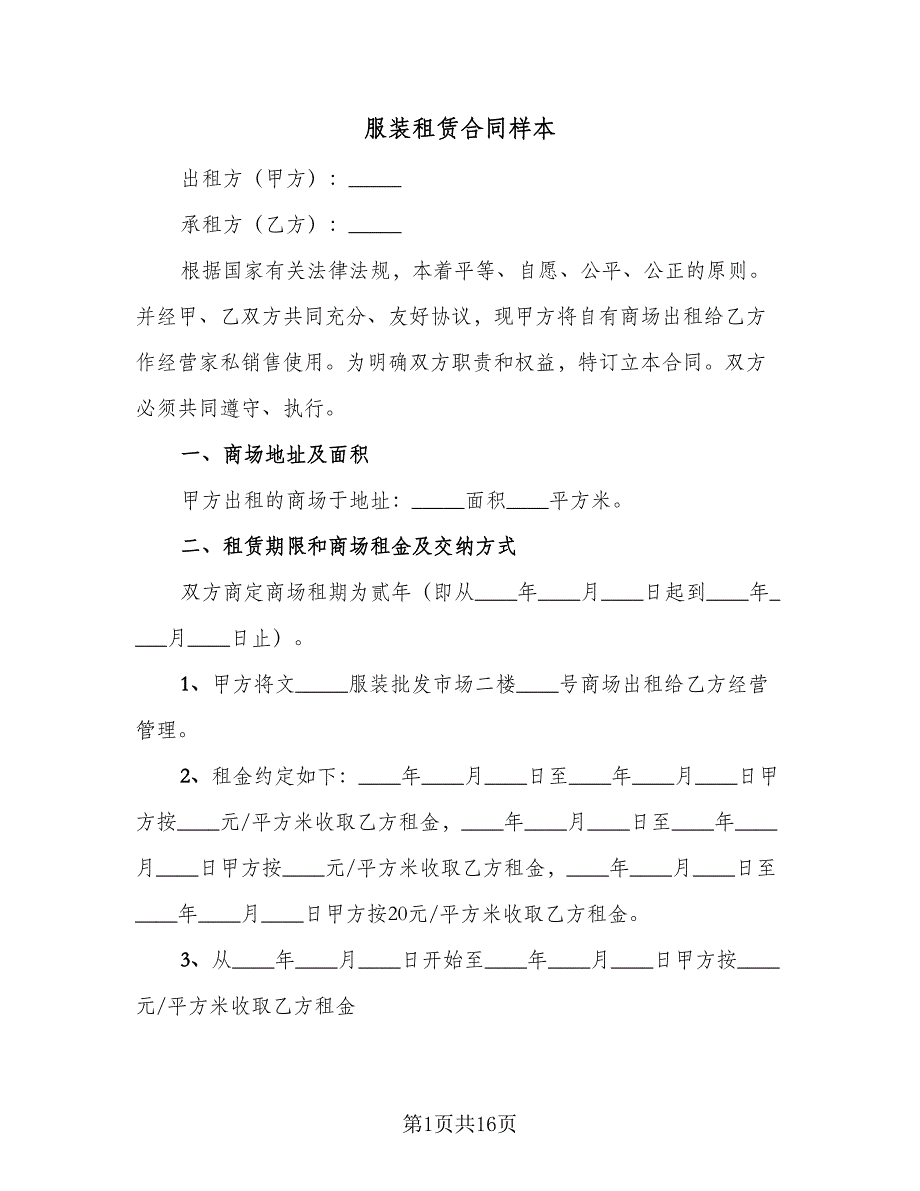 服装租赁合同样本
出租方（甲方）：_____
承租方（乙方）：_____
根据国家有关法律法规，本着平等、自愿、公平、公正的原则。
并经甲、乙双方共同充分、友好协议，现甲方将自有商场出租给乙方
作经营家私销售使用。为明确双方职责和权益，特订立本合同。双方
必须共同遵守、执行。
一、商场地址及面积
甲方出租的商场于地址：_____面积____平方米。
二、租赁期限和商场租金及交纳方式
双方商定商场租期为贰年（即从____年____月____日起到____年_
___月____日止）。
1、甲方将文_____服装批发市场二楼____号商场出租给乙方经营
管理。
2、租金约定如下：____年____月____日至____年____月____日甲
方按____元/平方米收取乙方租金，____年____月____日至____年____
月____日甲方按____元/平方米收取乙方租金，____年____月____日至
____年____月____日甲方按20元/平方米收取乙方租金。
3、从____年____月____日开始至____年____月____日甲方按____
元/平方米收取乙方租金
第1页共16页